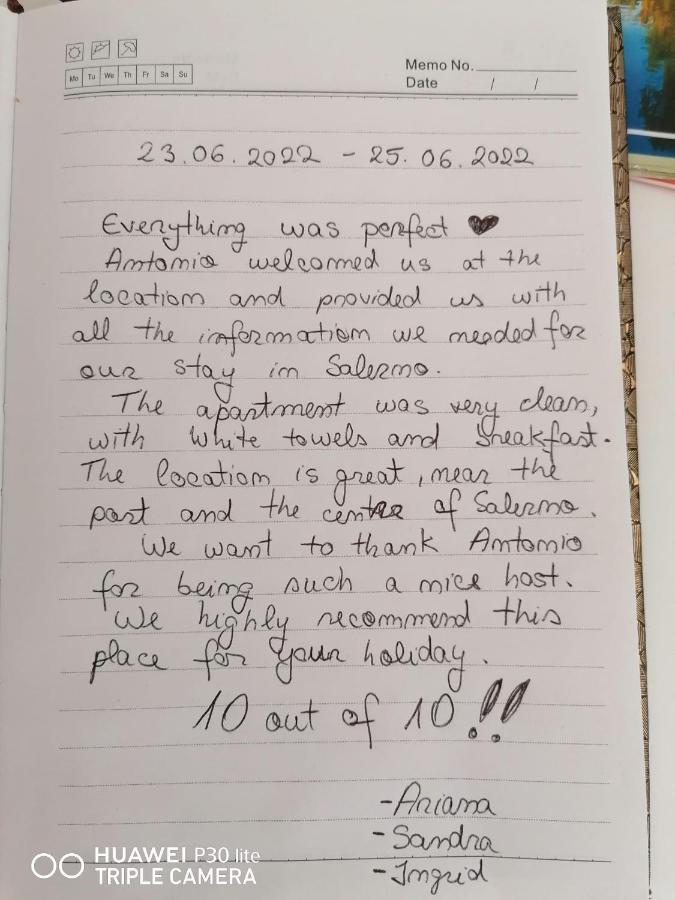 Memo No.
Mo Tu We Th Fr Sa Su
Date / /
23.06.2022 - 25.06.2022
Everything was perfect ♥
Antonio welcomed us at the
location and provided us with
all the information we needed for
our stay in Salerno.
The apartment was very clean,
with white towels and breakfast.
The location is great, near the
port and the centre of Salerno.
We want to thank Antonio
for being such a nice host.
We highly recommend this
place for your holiday.
10 out of 10!!
-Ariana
-Sandra
-Ingrid
HUAWEI P30 lite
TRIPLE CAMERA